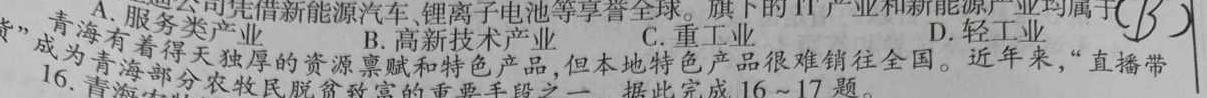 公司凭借新能源汽车、锂离子电池等享誉全球。旗下的IT产业和新能源产业均属于(B)
A. 服务类产业 B. 高新技术产业 C. 重工业 D. 轻工业
青海有着得天独厚的资源禀赋和特色产品,但本地特色产品很难销往全国。近年来,“直播带
货”成为青海部分农牧民脱贫致富的重要手段之一。据此完成16~17题。
16. 青海